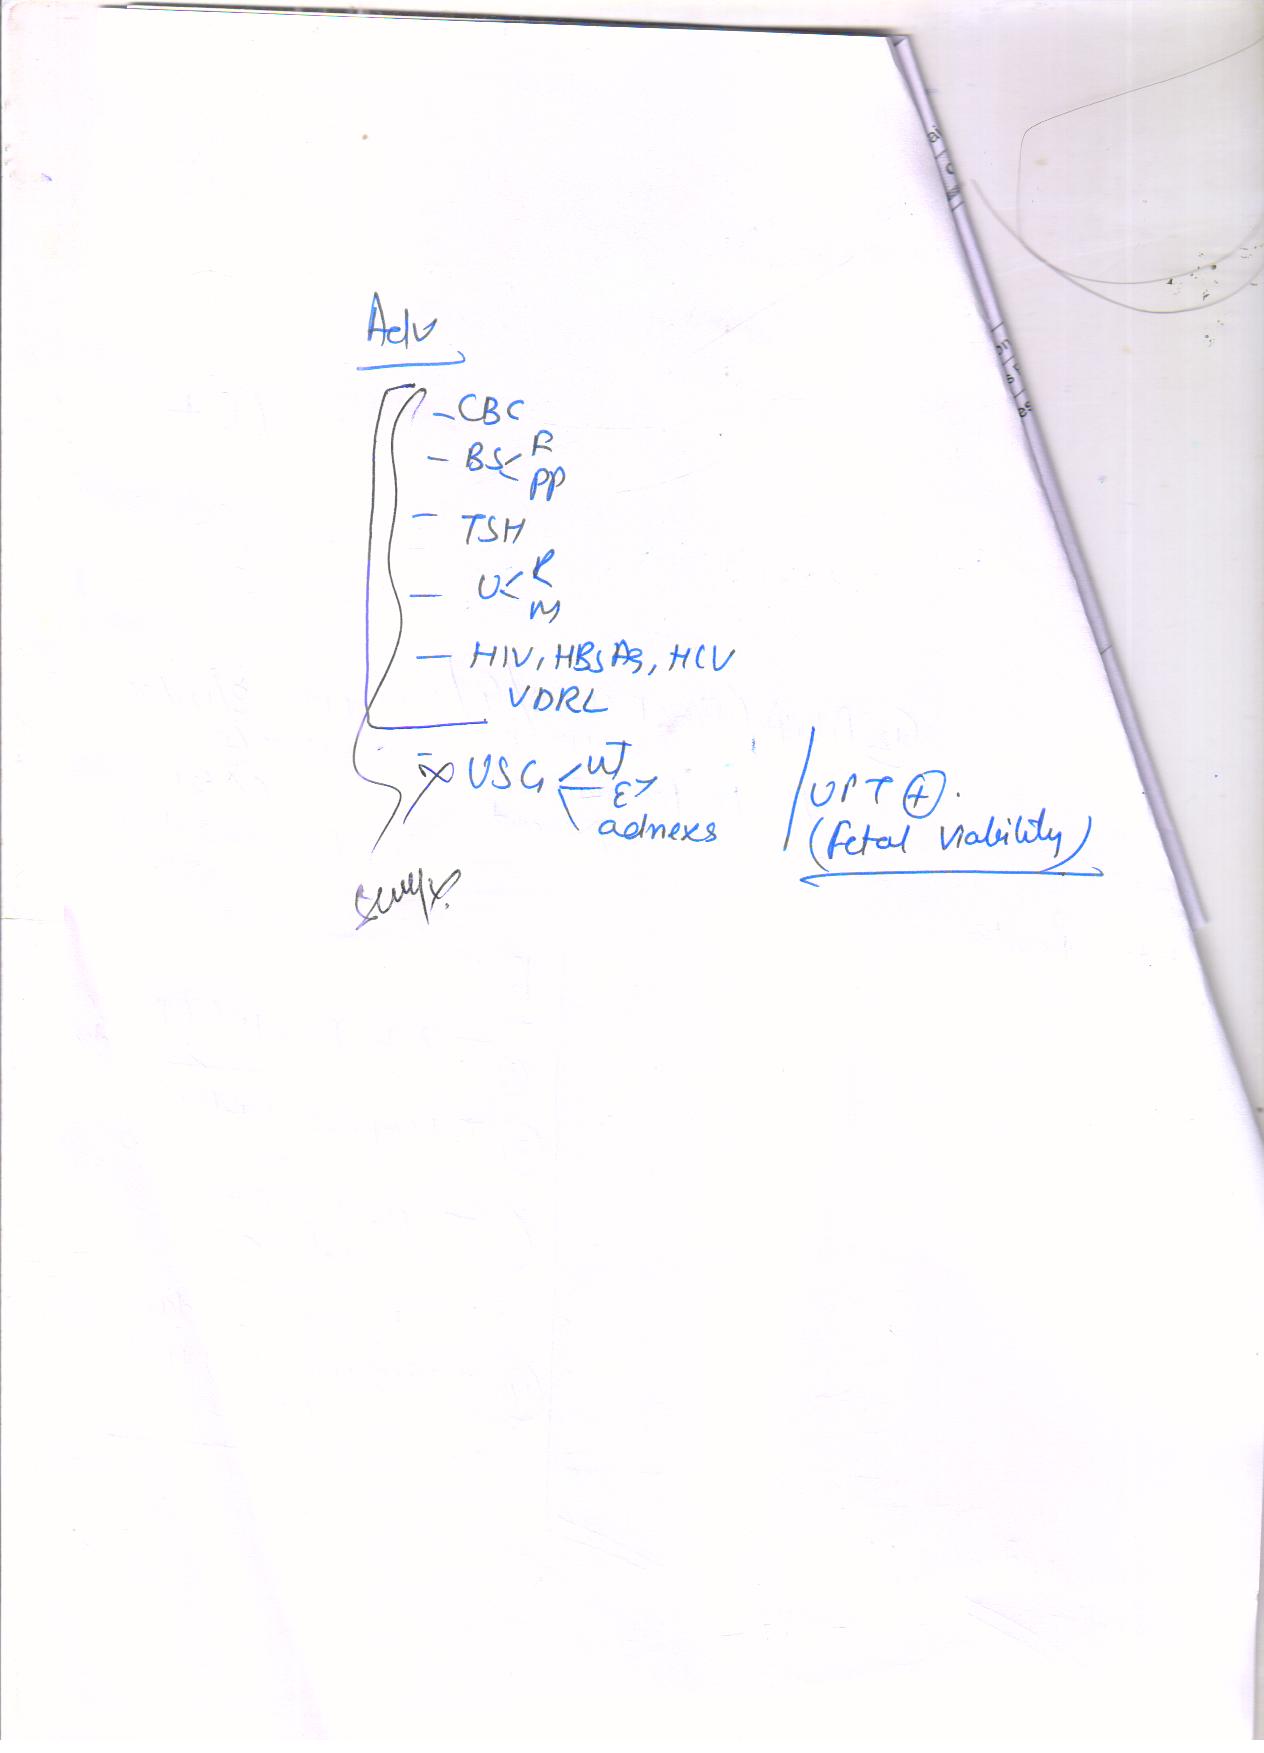 Adv
- CBC
- BS < F
PP
- TSH
- U < R
M
- HIV, HBsAg, HCV
VDRL
- USG < UT
&
adnexs
UPT (+).
(Fetal Viability)